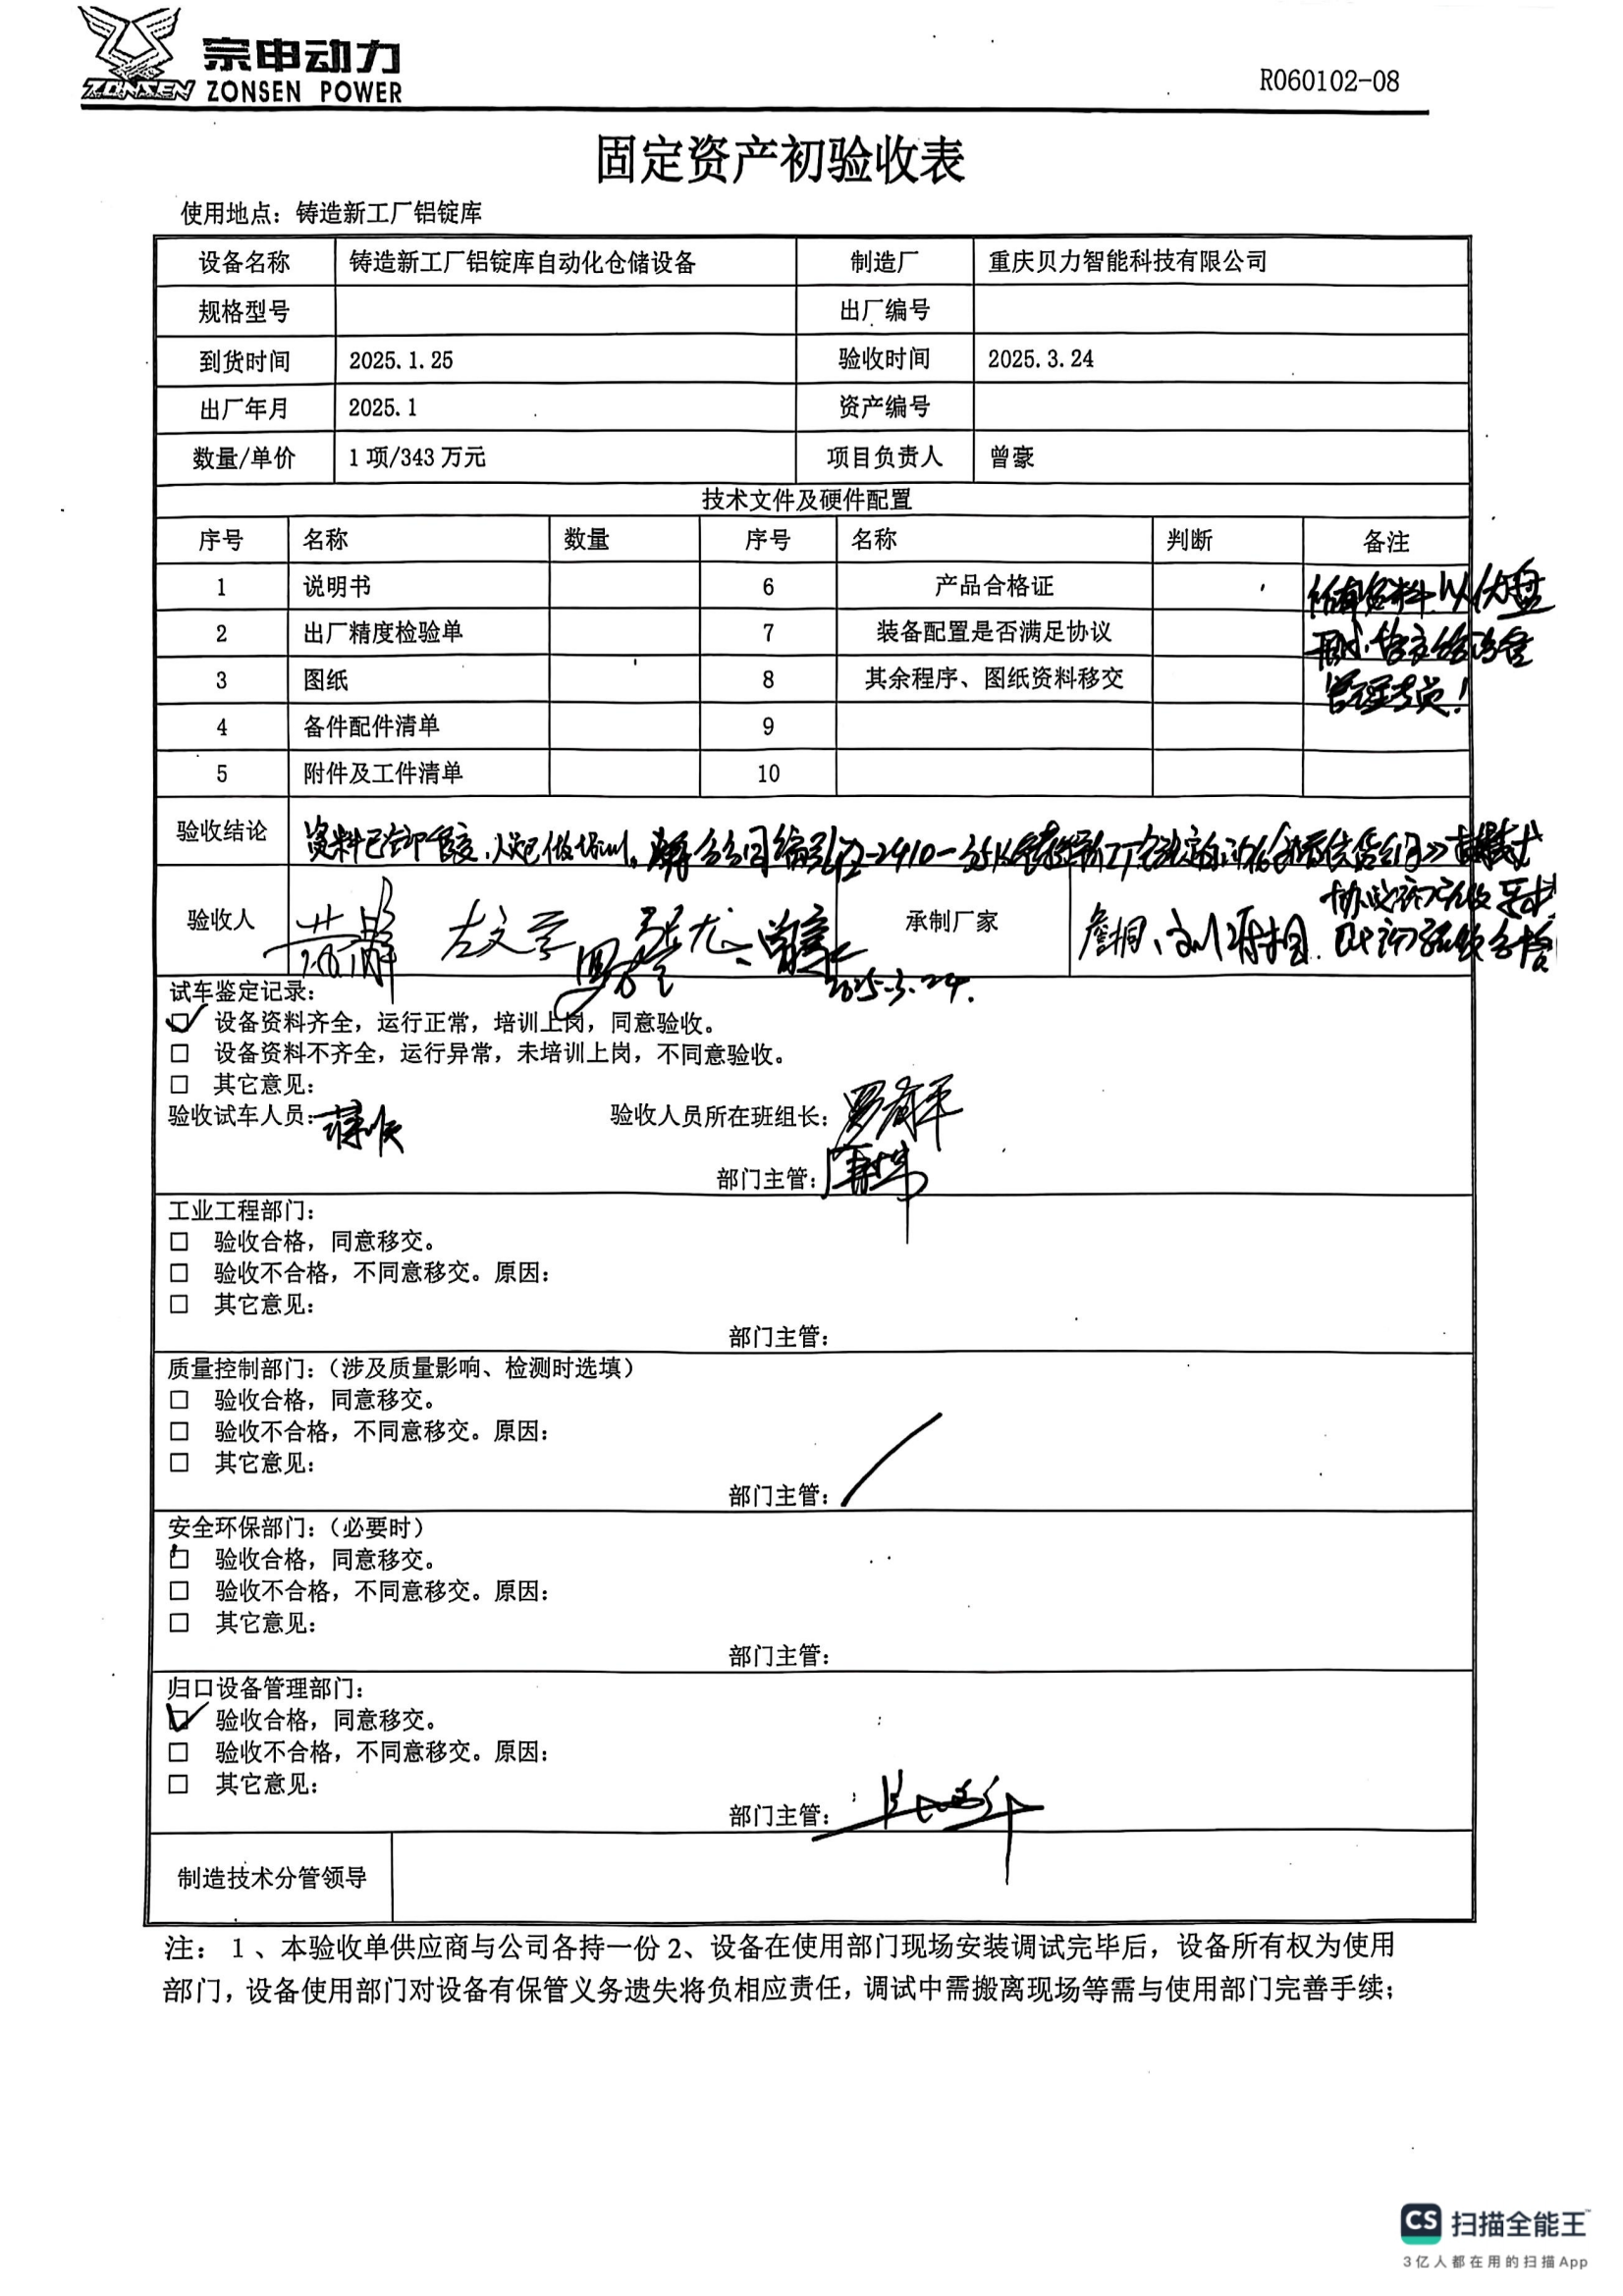 宗申动力
ZONSEN ZONSEN POWER
R060102-08
固定资产初验收表
使用地点：铸造新工厂铝锭库
设备名称 铸造新工厂铝锭库自动化仓储设备 制造厂 重庆贝力智能科技有限公司
规格型号 出厂编号
到货时间 2025.1.25 验收时间 2025.3.24
出厂年月 2025.1 资产编号
数量/单价 1 项/343 万元 项目负责人 曾豪
技术文件及硬件配置
序号 名称 数量 序号 名称 判断 备注
1 说明书 6 产品合格证 所有资料以优盘
2 出厂精度检验单 7 装备配置是否满足协议
3 图纸 8 其余程序、图纸资料移交 管理专员！
4 备件配件清单 9
5 附件及工件清单 10
验收结论 资料已 移交，人员已做培训，
验收人 左文 承制厂家
2025.3.24.
试车鉴定记录：
☑ 设备资料齐全，运行正常，培训上岗，同意验收。
□ 设备资料不齐全，运行异常，未培训上岗，不同意验收。
□ 其它意见：
验收试车人员： 验收人员所在班组长：
部门主管：
工业工程部门：
□ 验收合格，同意移交。
□ 验收不合格，不同意移交。原因：
□ 其它意见：
部门主管：
质量控制部门：（涉及质量影响、检测时选填）
□ 验收合格，同意移交。
□ 验收不合格，不同意移交。原因：
□ 其它意见：
部门主管：
安全环保部门：（必要时）
□ 验收合格，同意移交。
□ 验收不合格，不同意移交。原因：
□ 其它意见：
部门主管：
归口设备管理部门：
☑ 验收合格，同意移交。
□ 验收不合格，不同意移交。原因：
□ 其它意见：
部门主管：
制造技术分管领导
注： 1 、本验收单供应商与公司各持一份 2、设备在使用部门现场安装调试完毕后，设备所有权为使用
部门，设备使用部门对设备有保管义务遗失将负相应责任，调试中需搬离现场等需与使用部门完善手续；
CS 扫描全能王
3亿人都在用的扫描App